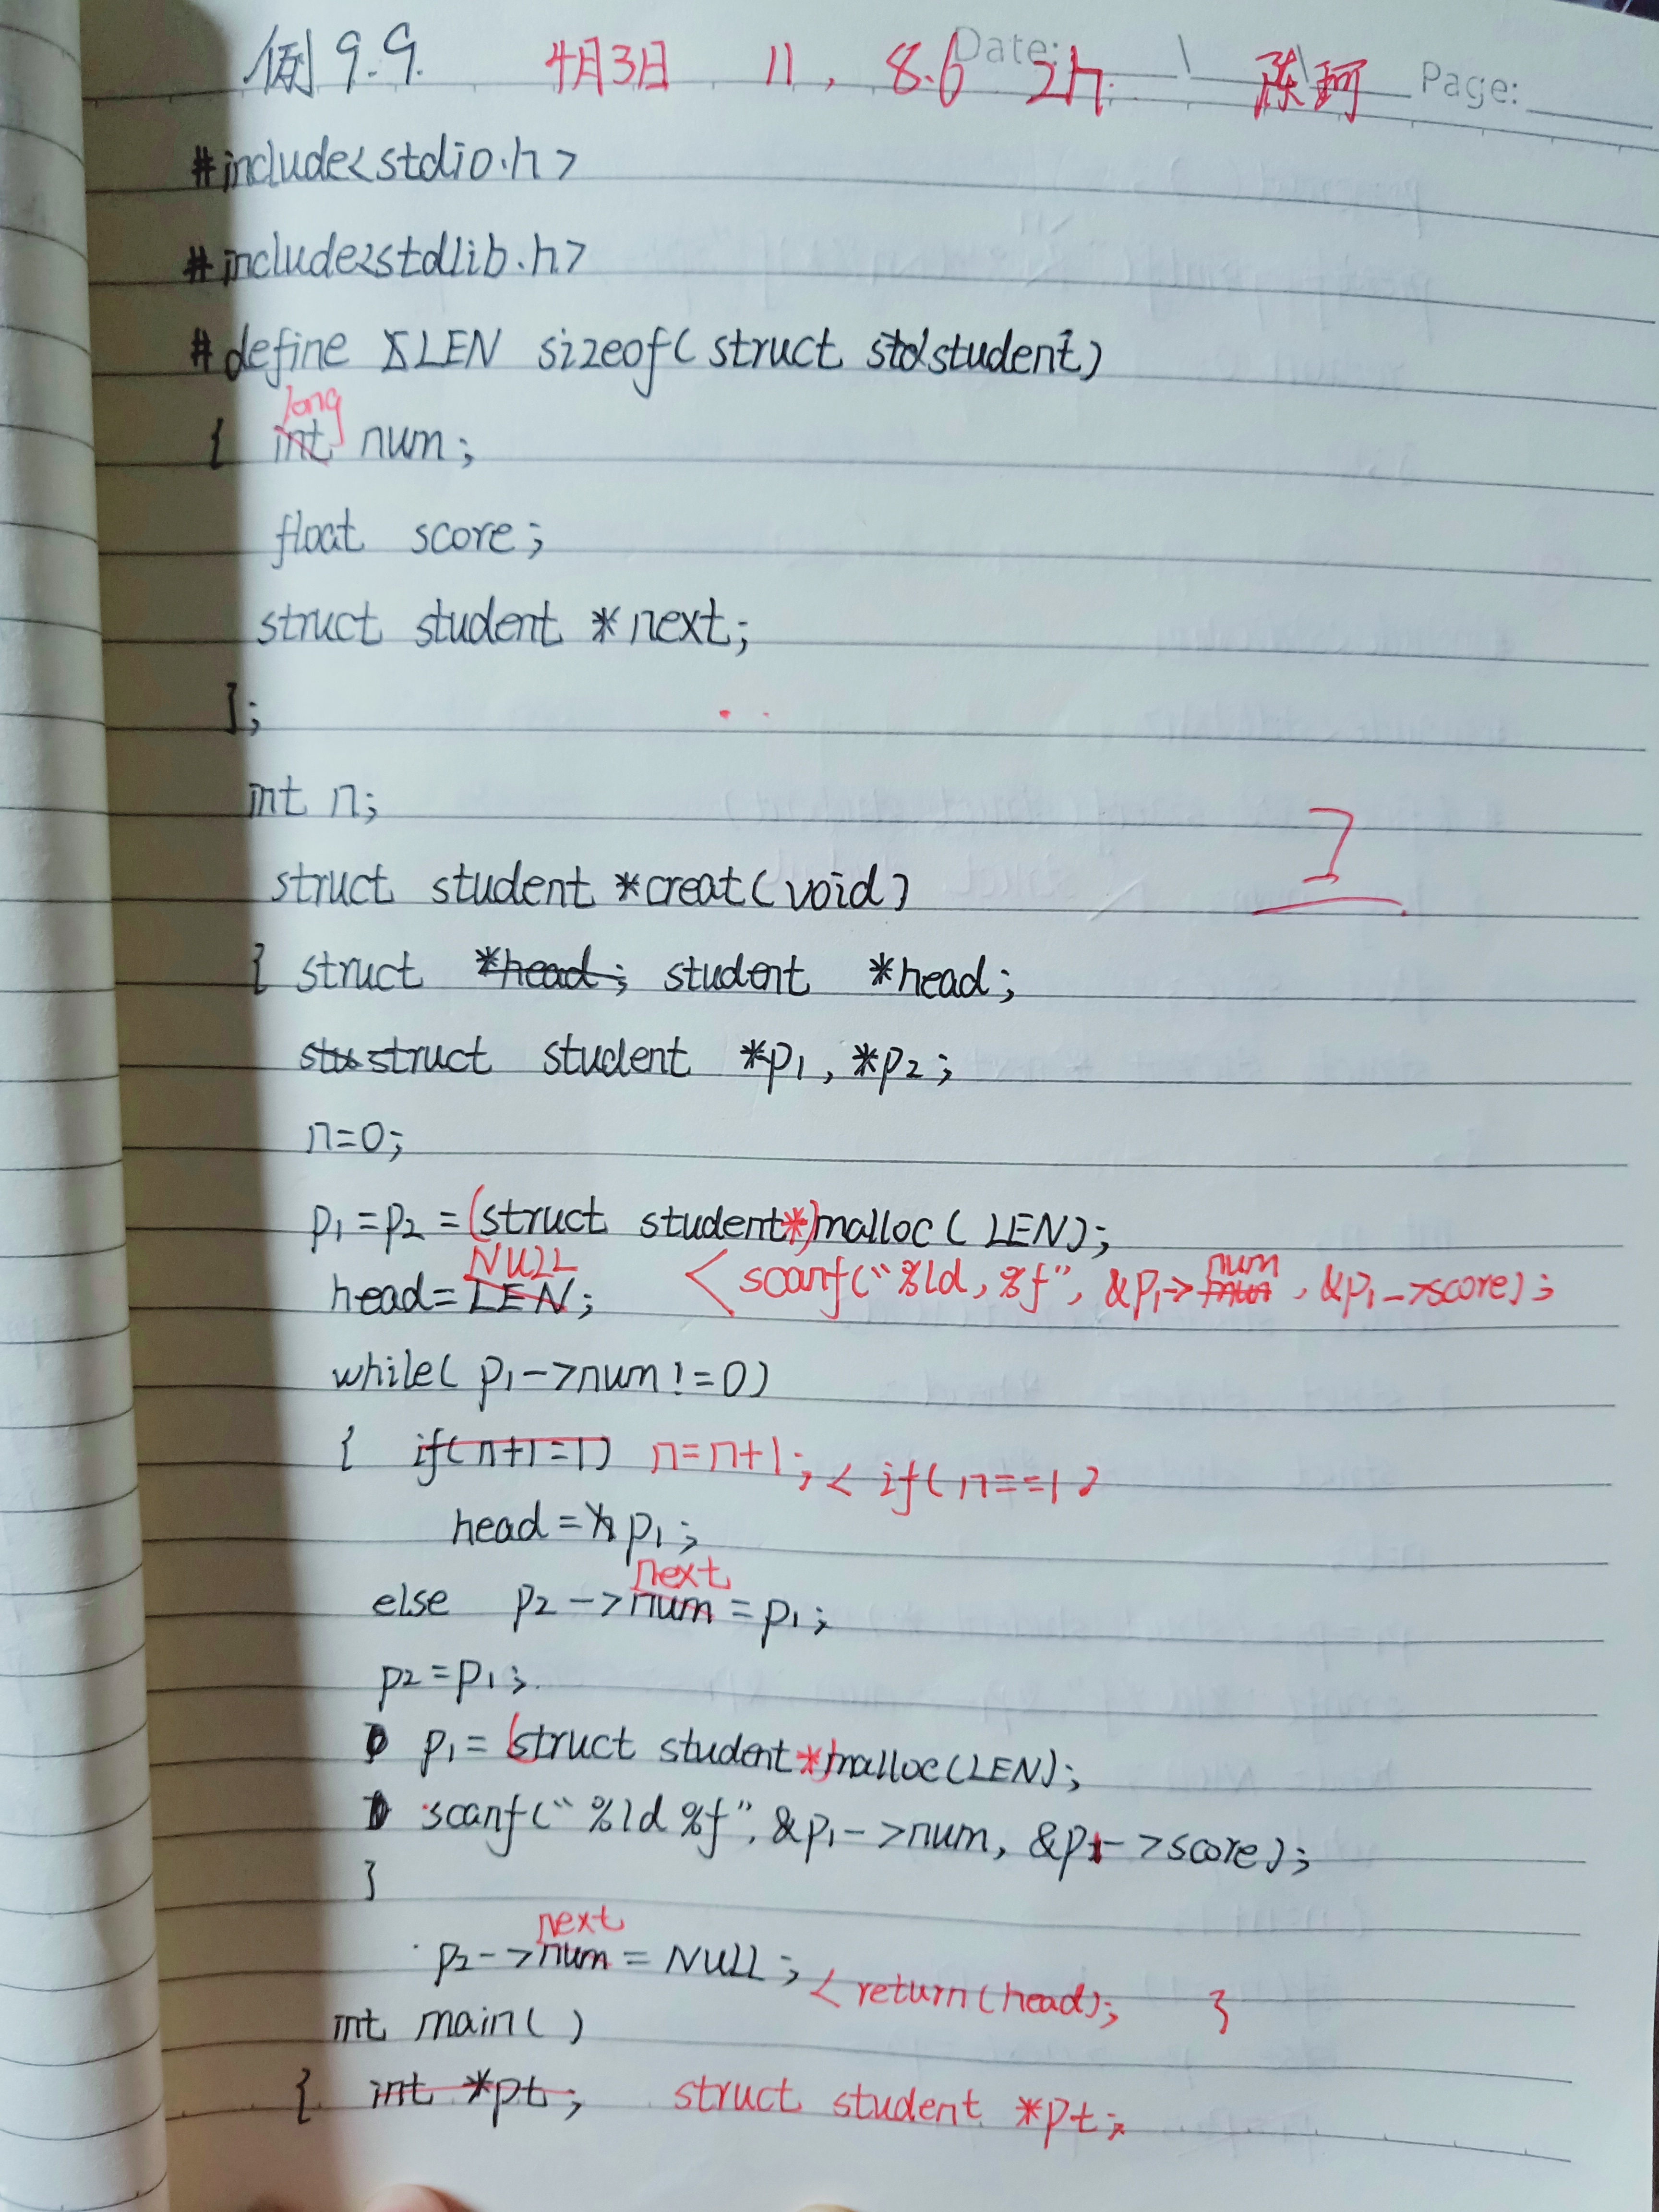 例9.9. 4月3日 11, 8.6 2h. 陈珂 Date: Page:
#include<stdio.h>
#include<stdlib.h>
#define LEN sizeof(struct student)
long
{ int num;
float score;
struct student *next;
};
int n;
struct student *creat(void)
{ struct *head; student *head;
struct student *p1, *p2;
n=0;
p1=p2=(struct student*)malloc(LEN);
NULL num
head=LEN; < scanf("%ld, %f", &p1-> , &p1->score);
while(p1->num!=0)
{ if(n+1=1) n=n+1; < if(n==1)
head=p1;
next
else p2->num=p1;
p2=p1;
p1=(struct student*)malloc(LEN);
scanf("%ld %f", &p1->num, &p1->score);
}
next
p2->num=NULL; < return(head); }
int main()
{ int *pt; struct student *pt;